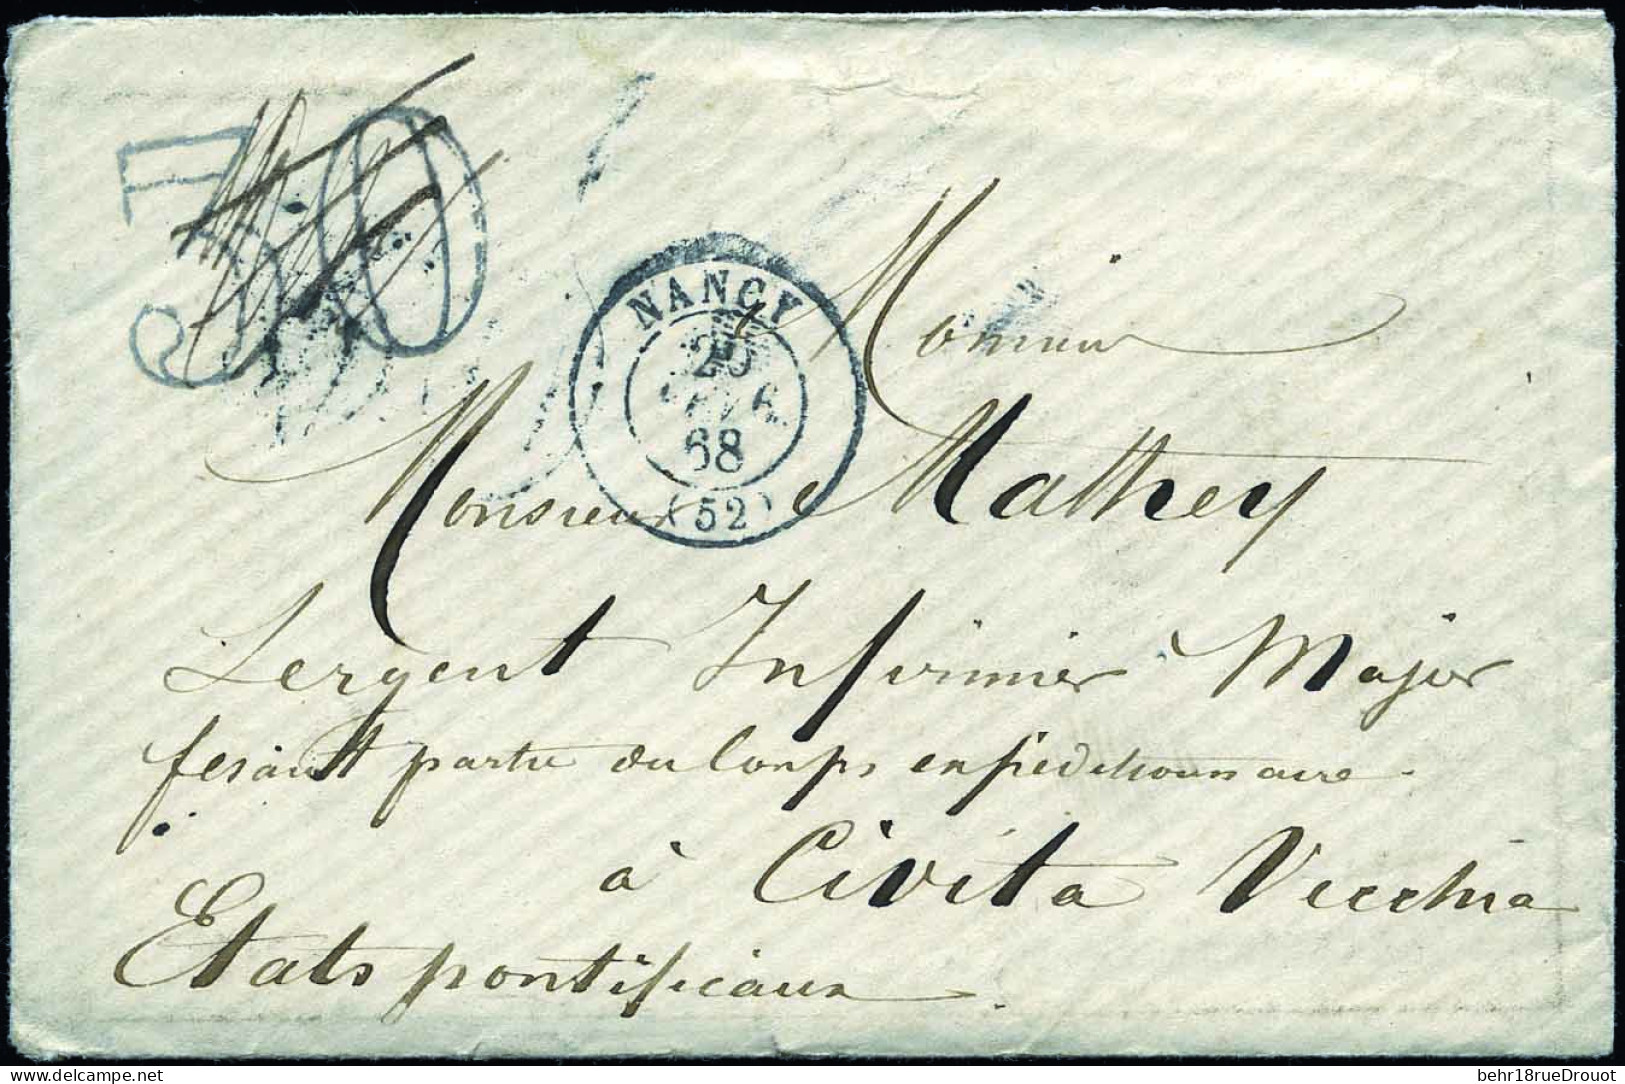 30
NANCY
68
(52)
Monsieur
Monsieur Mathey
Sergent Infirmier Major
fesant partie du Corps expéditionnaire
à Civita Vecchia
Etats pontificaux
delcampe.net
behr18rueDrouot